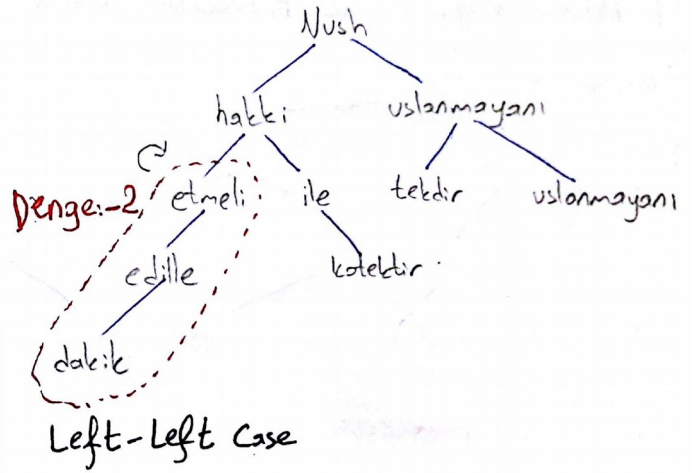 Nush
hakki uslanmayanı
Denge:-2 etmeli ile tekdir uslanmayanı
edille kotektir
dakik
Left-Left Case